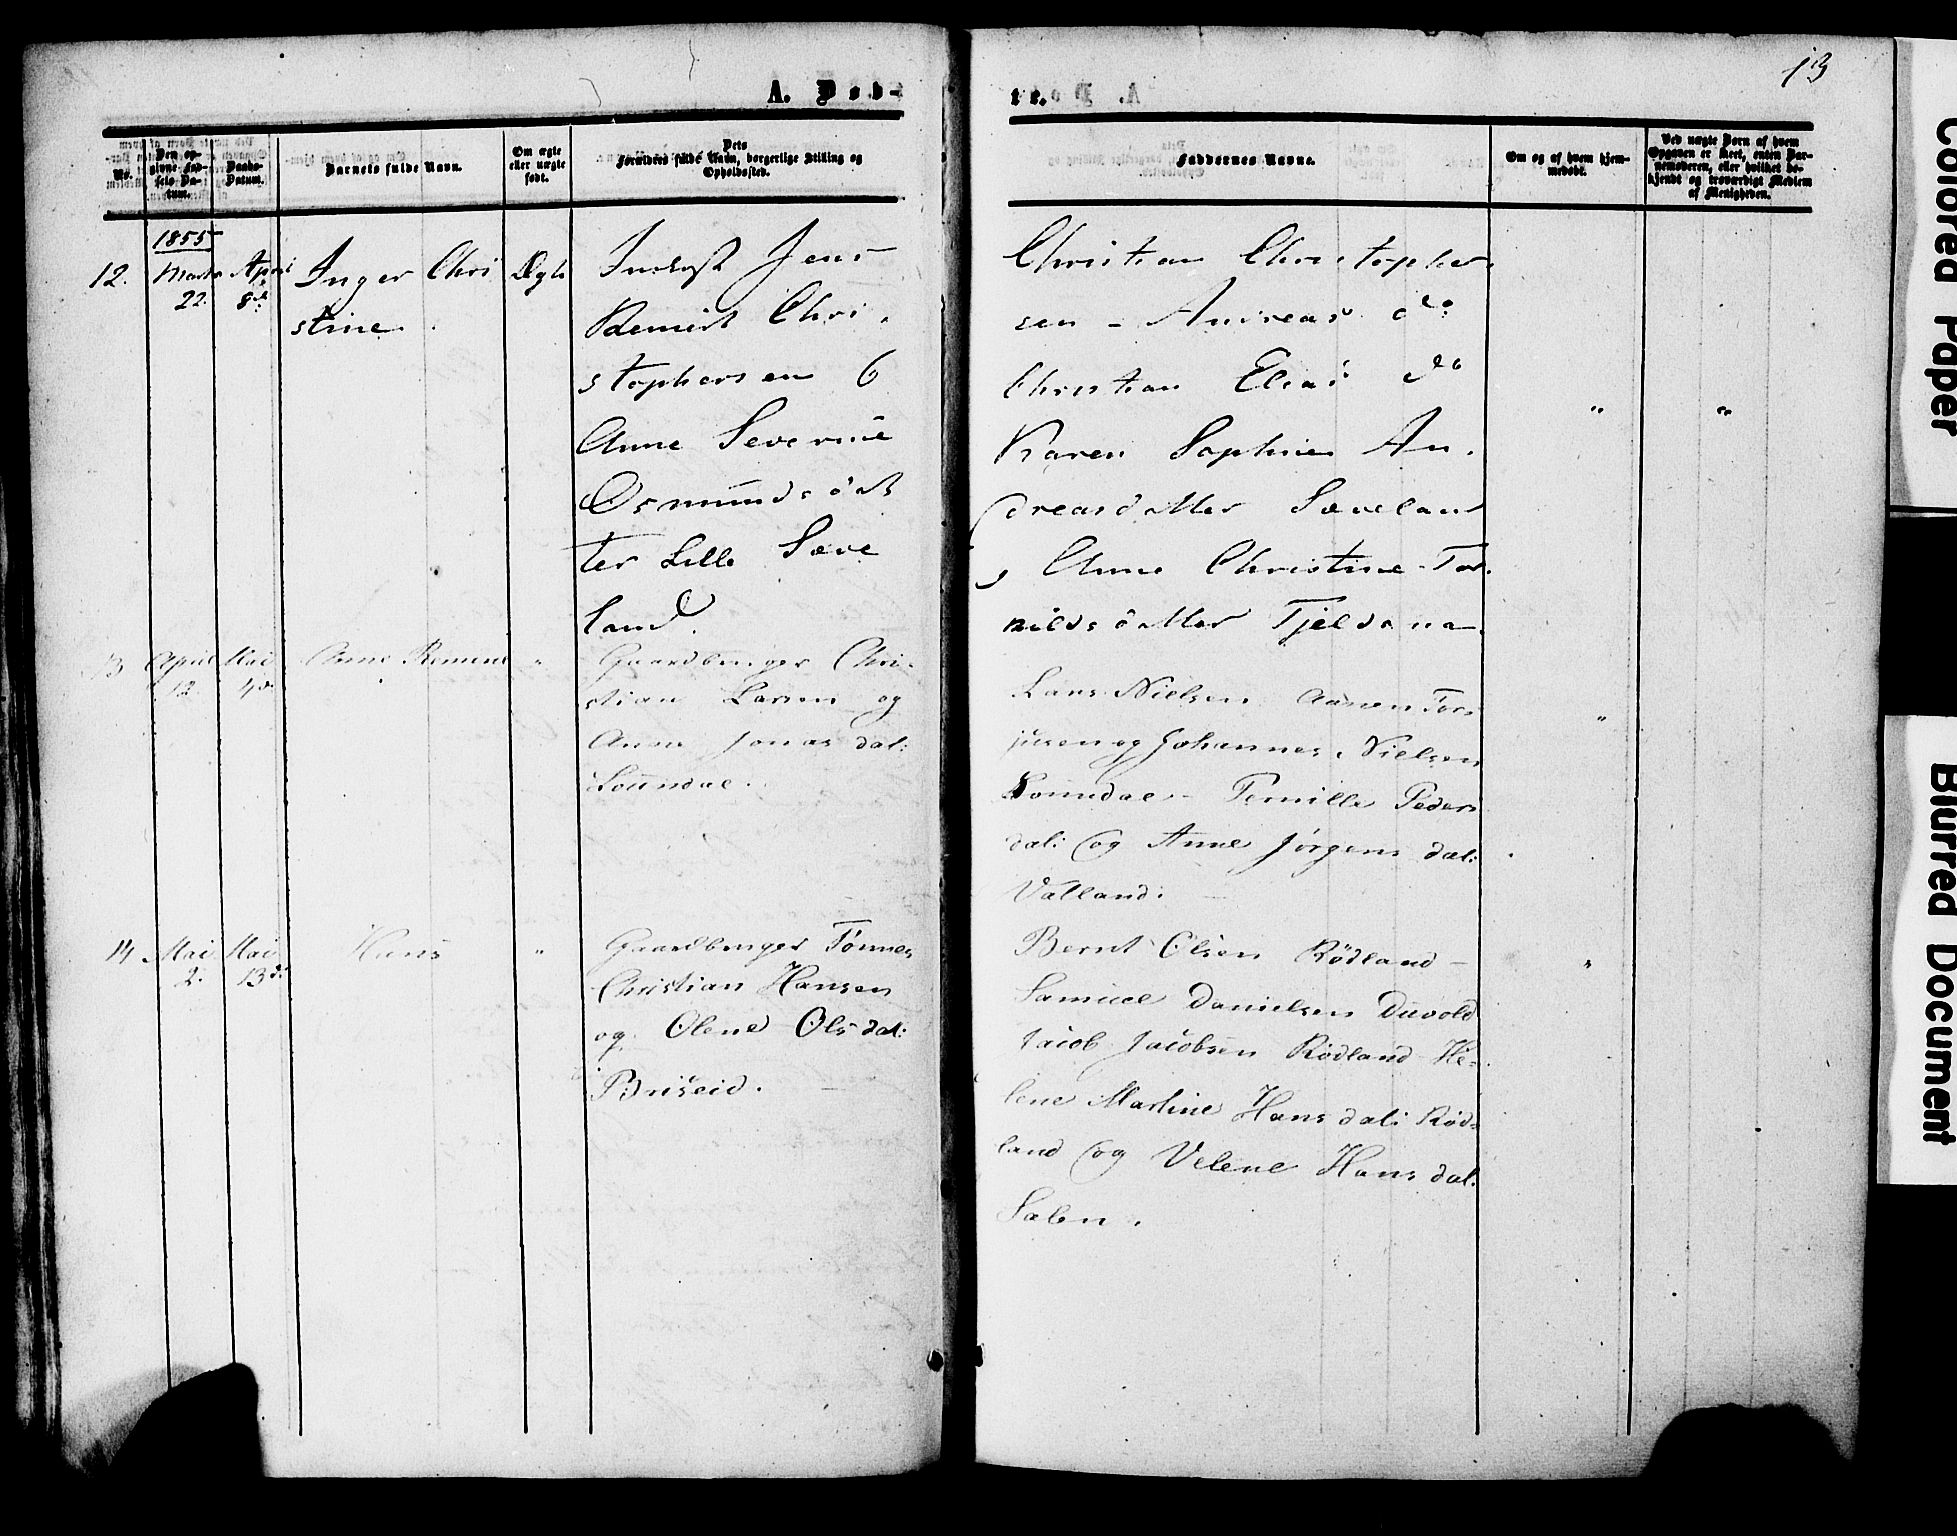 13
A. Døb-
te.
No.
Den op-
givne Fød-
sels Da-
tum.
Daabs-
Datum.
Barnets fulde Navn.
Om ægte
eller uægte
født.
Dets
Forældres fulde Navn, borgerlige Stilling og
Opholdssted.
Faddernes Navne.
Om og af hvem hjem-
medøbt.
Ved uægte Børn af hvem
Opgaven er skeet, enten Bar-
nemoderen, eller hvilket be-
kjendt og troværdigt Medlem
af Menigheden.
1855
12.
Marts
22.
April
8de
Inger Chri
stine.
Ægte
Jens
Berneret Chri.
stophersen &
Anne Severine
Osmundsdat
ter Lille Sæve
land.
Christian Christopher
sen - Andreas do
Christian Elias do
Karen Sophie An.
dreasdatter Sæveland
, Anne Christine Tor.
nildsdatter Tjeldsna
13
April
12.
Mai
4de
Anne
"
Gaardbruger Chri-
stian Larsen og
Anne Jonas dat:
Loundal.
Lars Nielsen Aanen Tor
jusen og Johannes Nielsen
Loundal - Pernille Peders
dat: og Anne Jörgens dat:
Valland.
"
14
Mai
2.
Mai
13de
Hans
"
Gaardbruger Tönnes
Christian Hansen
og Olene Ols dat:
Briseid.
Bernt Olsen Rödland -
Samuel Danielsen Duvold
Jacob Jacobsen Rödland He-
lene Martine Hans dat: Röd-
land og Velene Hans dat.
Salen.
"
Colored Paper
Blurred Document